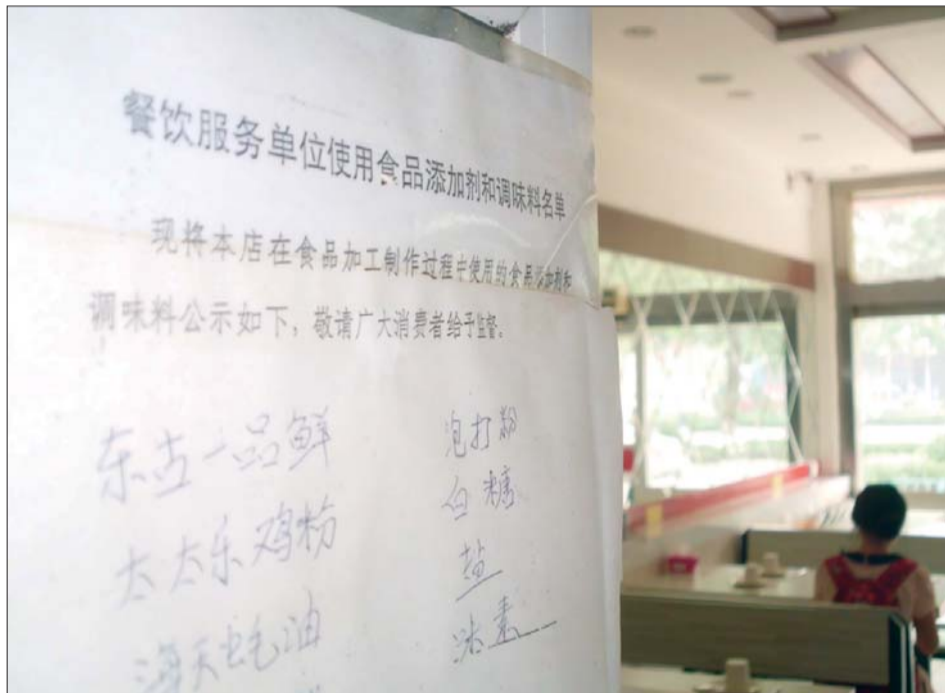 餐饮服务单位使用食品添加剂和调味料名单
现将本店在食品加工制作过程中使用的食品添加剂和
调味料公示如下，敬请广大消费者给予监督。
东古一品鲜 泡打粉
太太乐鸡粉 白糖
海天蚝油 盐
味素